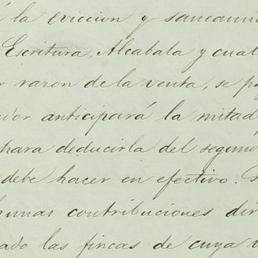 á la eviccion y saneami
Escritura, Alcabala y cual
razon de la venta, se pa
anticipará la mitad
hara deducirla del segun
debe hacer en efectivo.
contribuciones dir
ado las fincas de cuya v